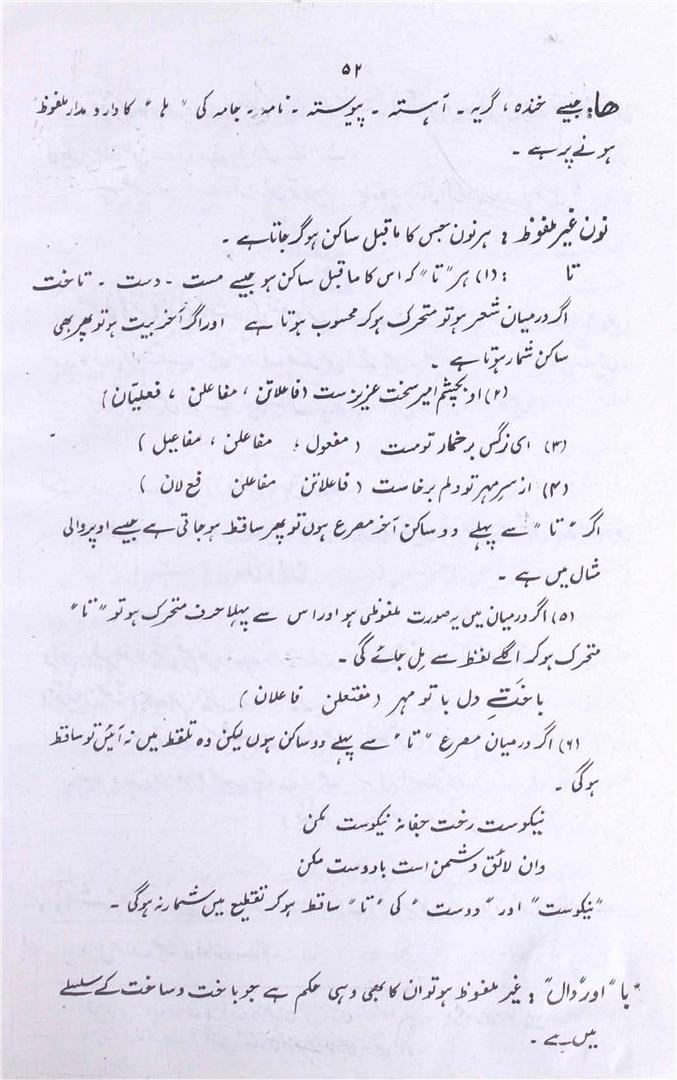 ۵۲
ھا: جیسے خندہ ، گریہ ۔ آہستہ ۔ پیوستہ ۔ نامہ ۔ جامہ کی "ہا" کا دار و مدار ملفوظ
ہونے پر ہے ۔
نون غیر ملفوظ : ہر نون جس کا ماقبل ساکن ہو گر جاتا ہے ۔
تا : (۱) ہر "تا" کہ اس کا ماقبل ساکن ہو جیسے مست ۔ دست ۔ تاخت
اگر درمیان شعر ہو تو متحرک ہو کر محسوب ہوتا ہے اور اگر آخر بیت ہو تو پھر بھی
ساکن شمار ہوتا ہے ۔
(۲) او بچشم امیر سخت عزیزست (فاعلاتن ، مفاعلن ، فعلیّان)
(۳) ای نرگس پر خمار تو مست (مفعول ، مفاعلن ، مفاعیل)
(۴) از سر مہر تو دلم برخاست (فاعلاتن مفاعلن فع لان)
اگر "تا" سے پہلے دو ساکن آخر مصرع ہوں تو پھر ساقط ہو جاتی ہے جیسے اوپر والی
مثال میں ہے ۔
(۵) اگر درمیان میں یہ صورت ملفوظی ہو اور اس سے پہلا حرف متحرک ہو تو "تا"
متحرک ہو کر اگلے لفظ سے مل جائے گی ۔
باختَےِ دل با تو مہر (مفتعلن فاعلان)
(۶) اگر درمیان مصرع "تا" سے پہلے دو ساکن ہوں لیکن وہ تلفظ میں نہ آئیں تو ساقط
ہوگی ۔
نیکوست رخت جفا نہ نیکوست مکن
وان لائق دشمن است با دوست مکن
"نیکوست" اور "دوست" کی "تا" ساقط ہو کر تقطیع میں شمار نہ ہوگی ۔
"با" اور "دال" : غیر ملفوظ ہو تو ان کا بھی وہی حکم ہے جو باخت و ساخت کے سلسلے
میں ہے ۔